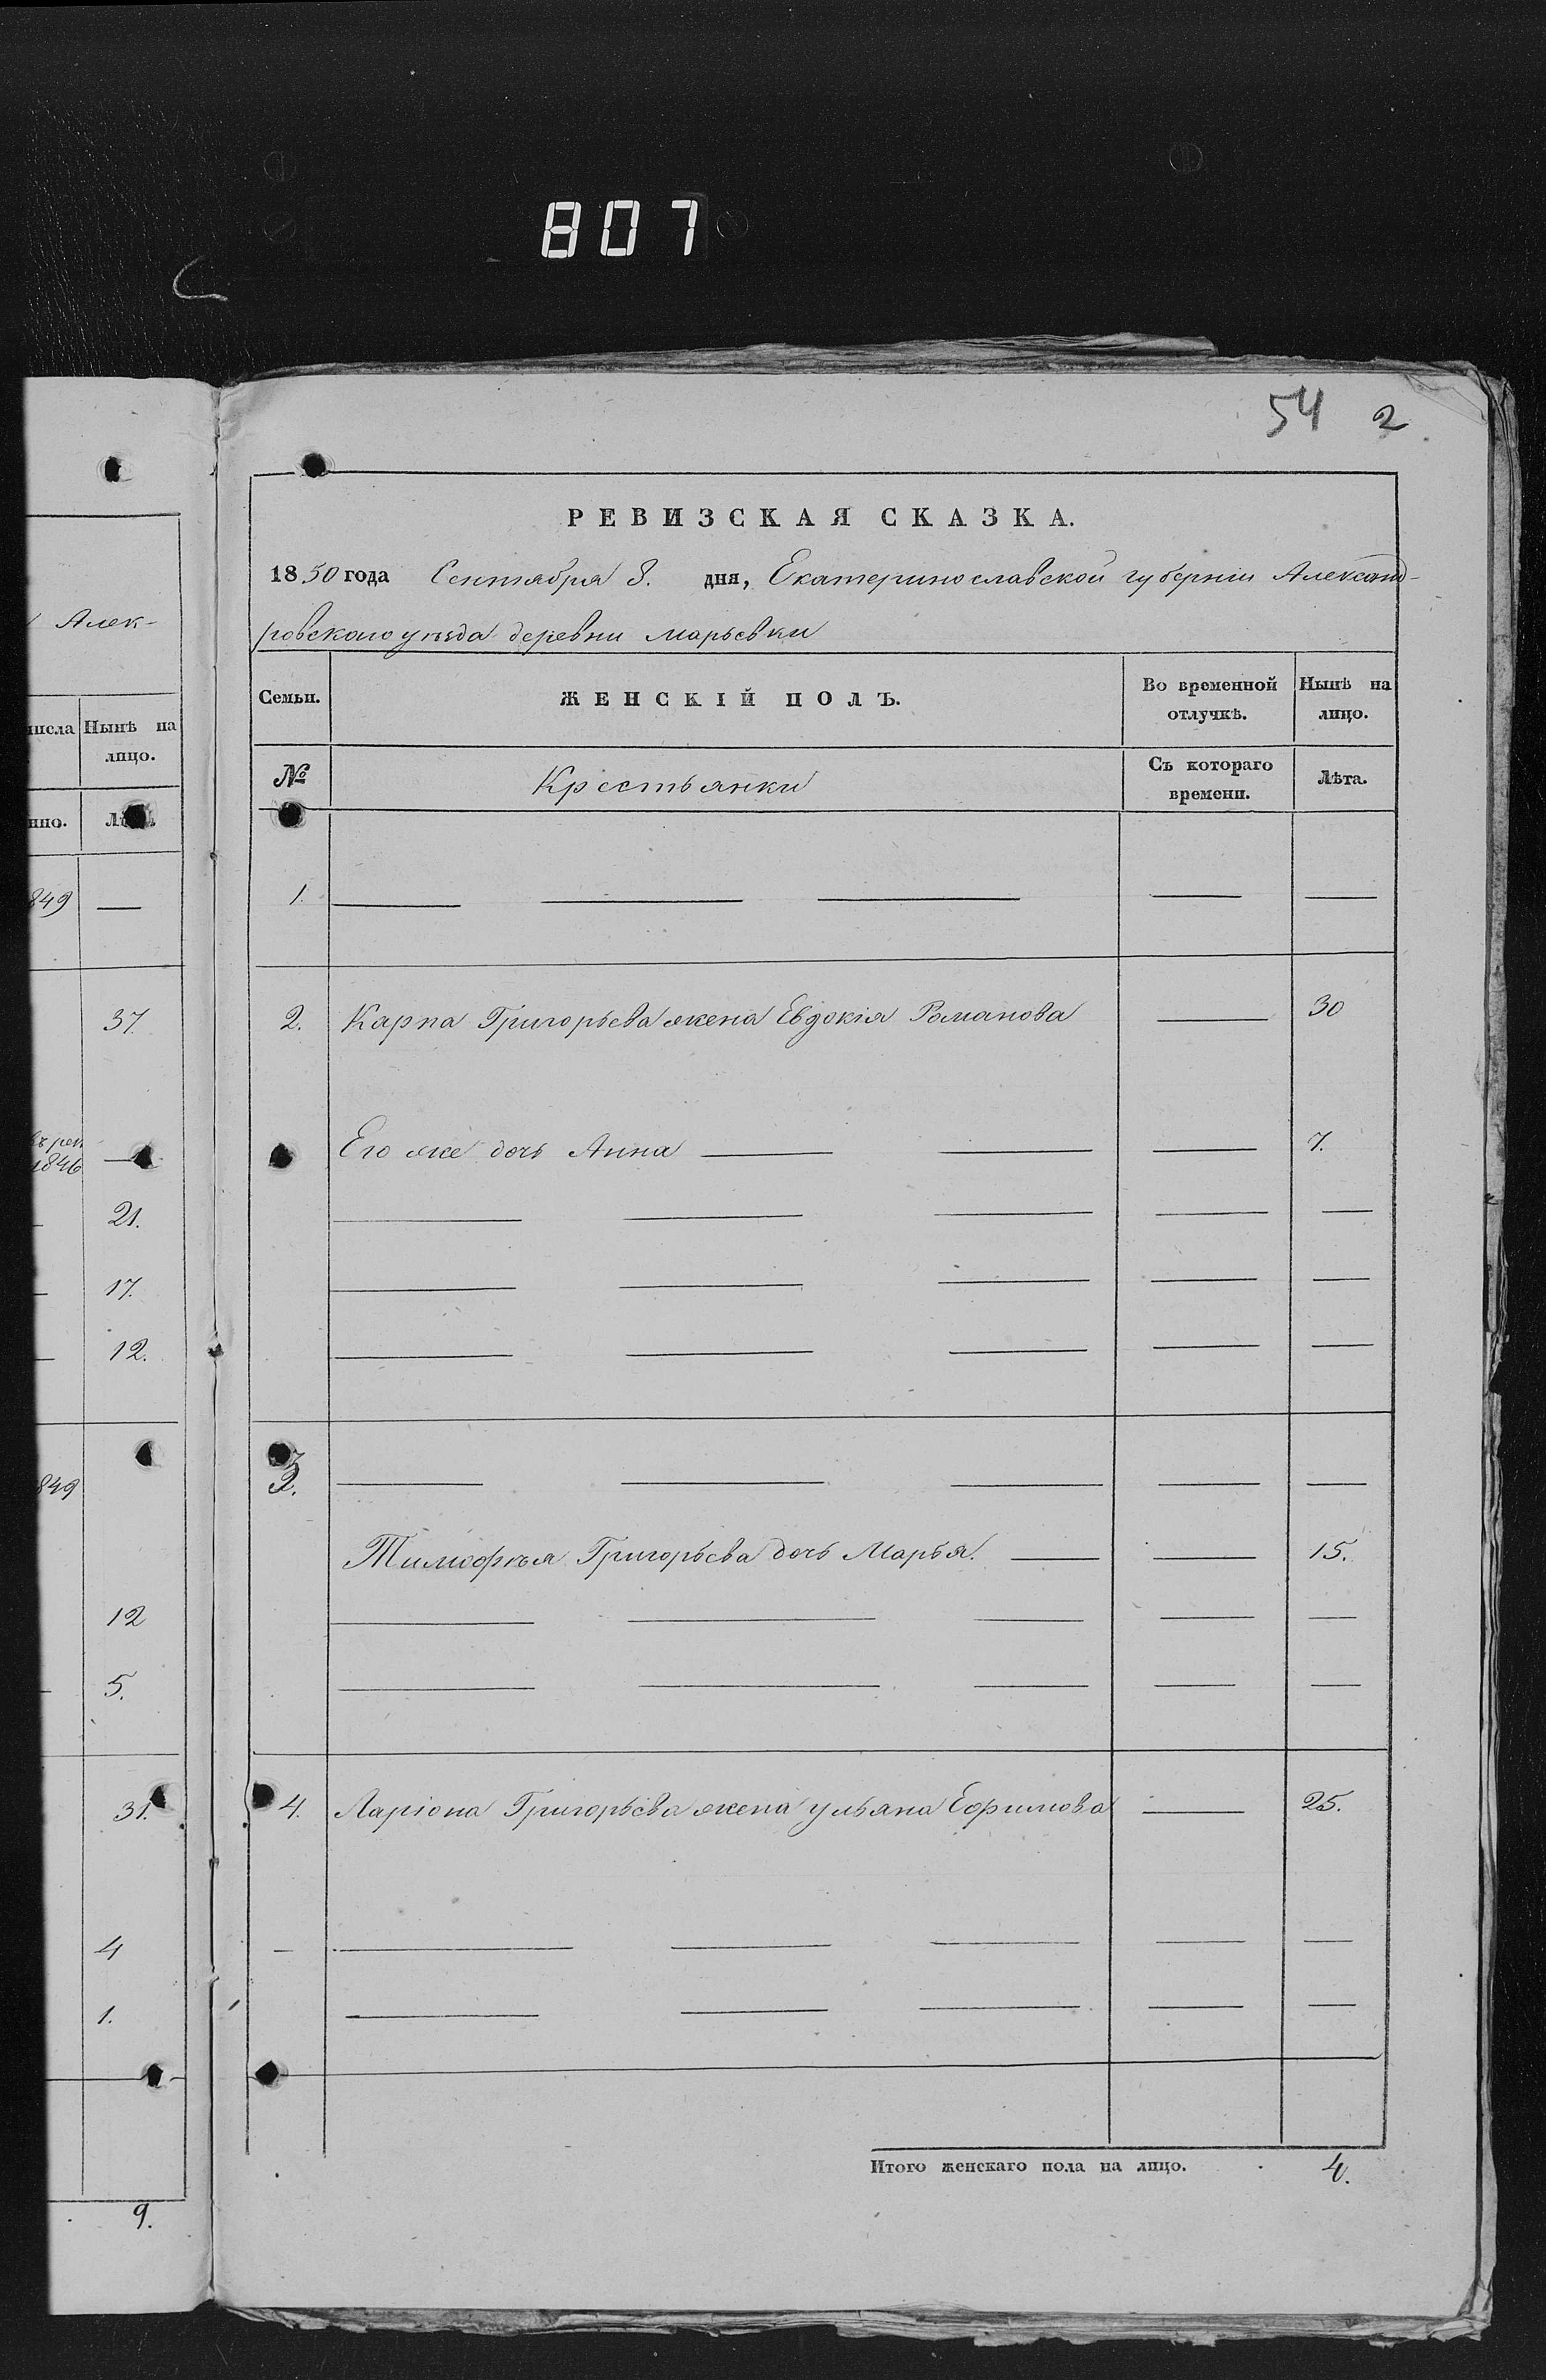 807
54 2
РЕВИЗСКАЯ СКАЗКА.
1850 года Сентября 8. дня, Екатеринославской губерніи Александ-
ровского уѣзда деревни Марьевки
Семьи. ЖЕНСКІЙ ПОЛЪ. Во временной отлучкѣ. Нынѣ на лицо.
№ Крестьянки Съ котораго времени. Лѣта.
1.
2. Карпа Григорьева жена Евдокія Романова 30
Его же дочь Анна 7.
3.
Тимофѣя Григорьева дочь Марья. 15.
4. Ларіона Григорьева жена Ульяна Ефимова 25.
Итого женскаго пола на лицо. 4.
Алек-
числа Нынѣ на
лицо.
нно.
849
37.
1846
21.
17.
12.
849
12
5.
31.
4
1.
9.